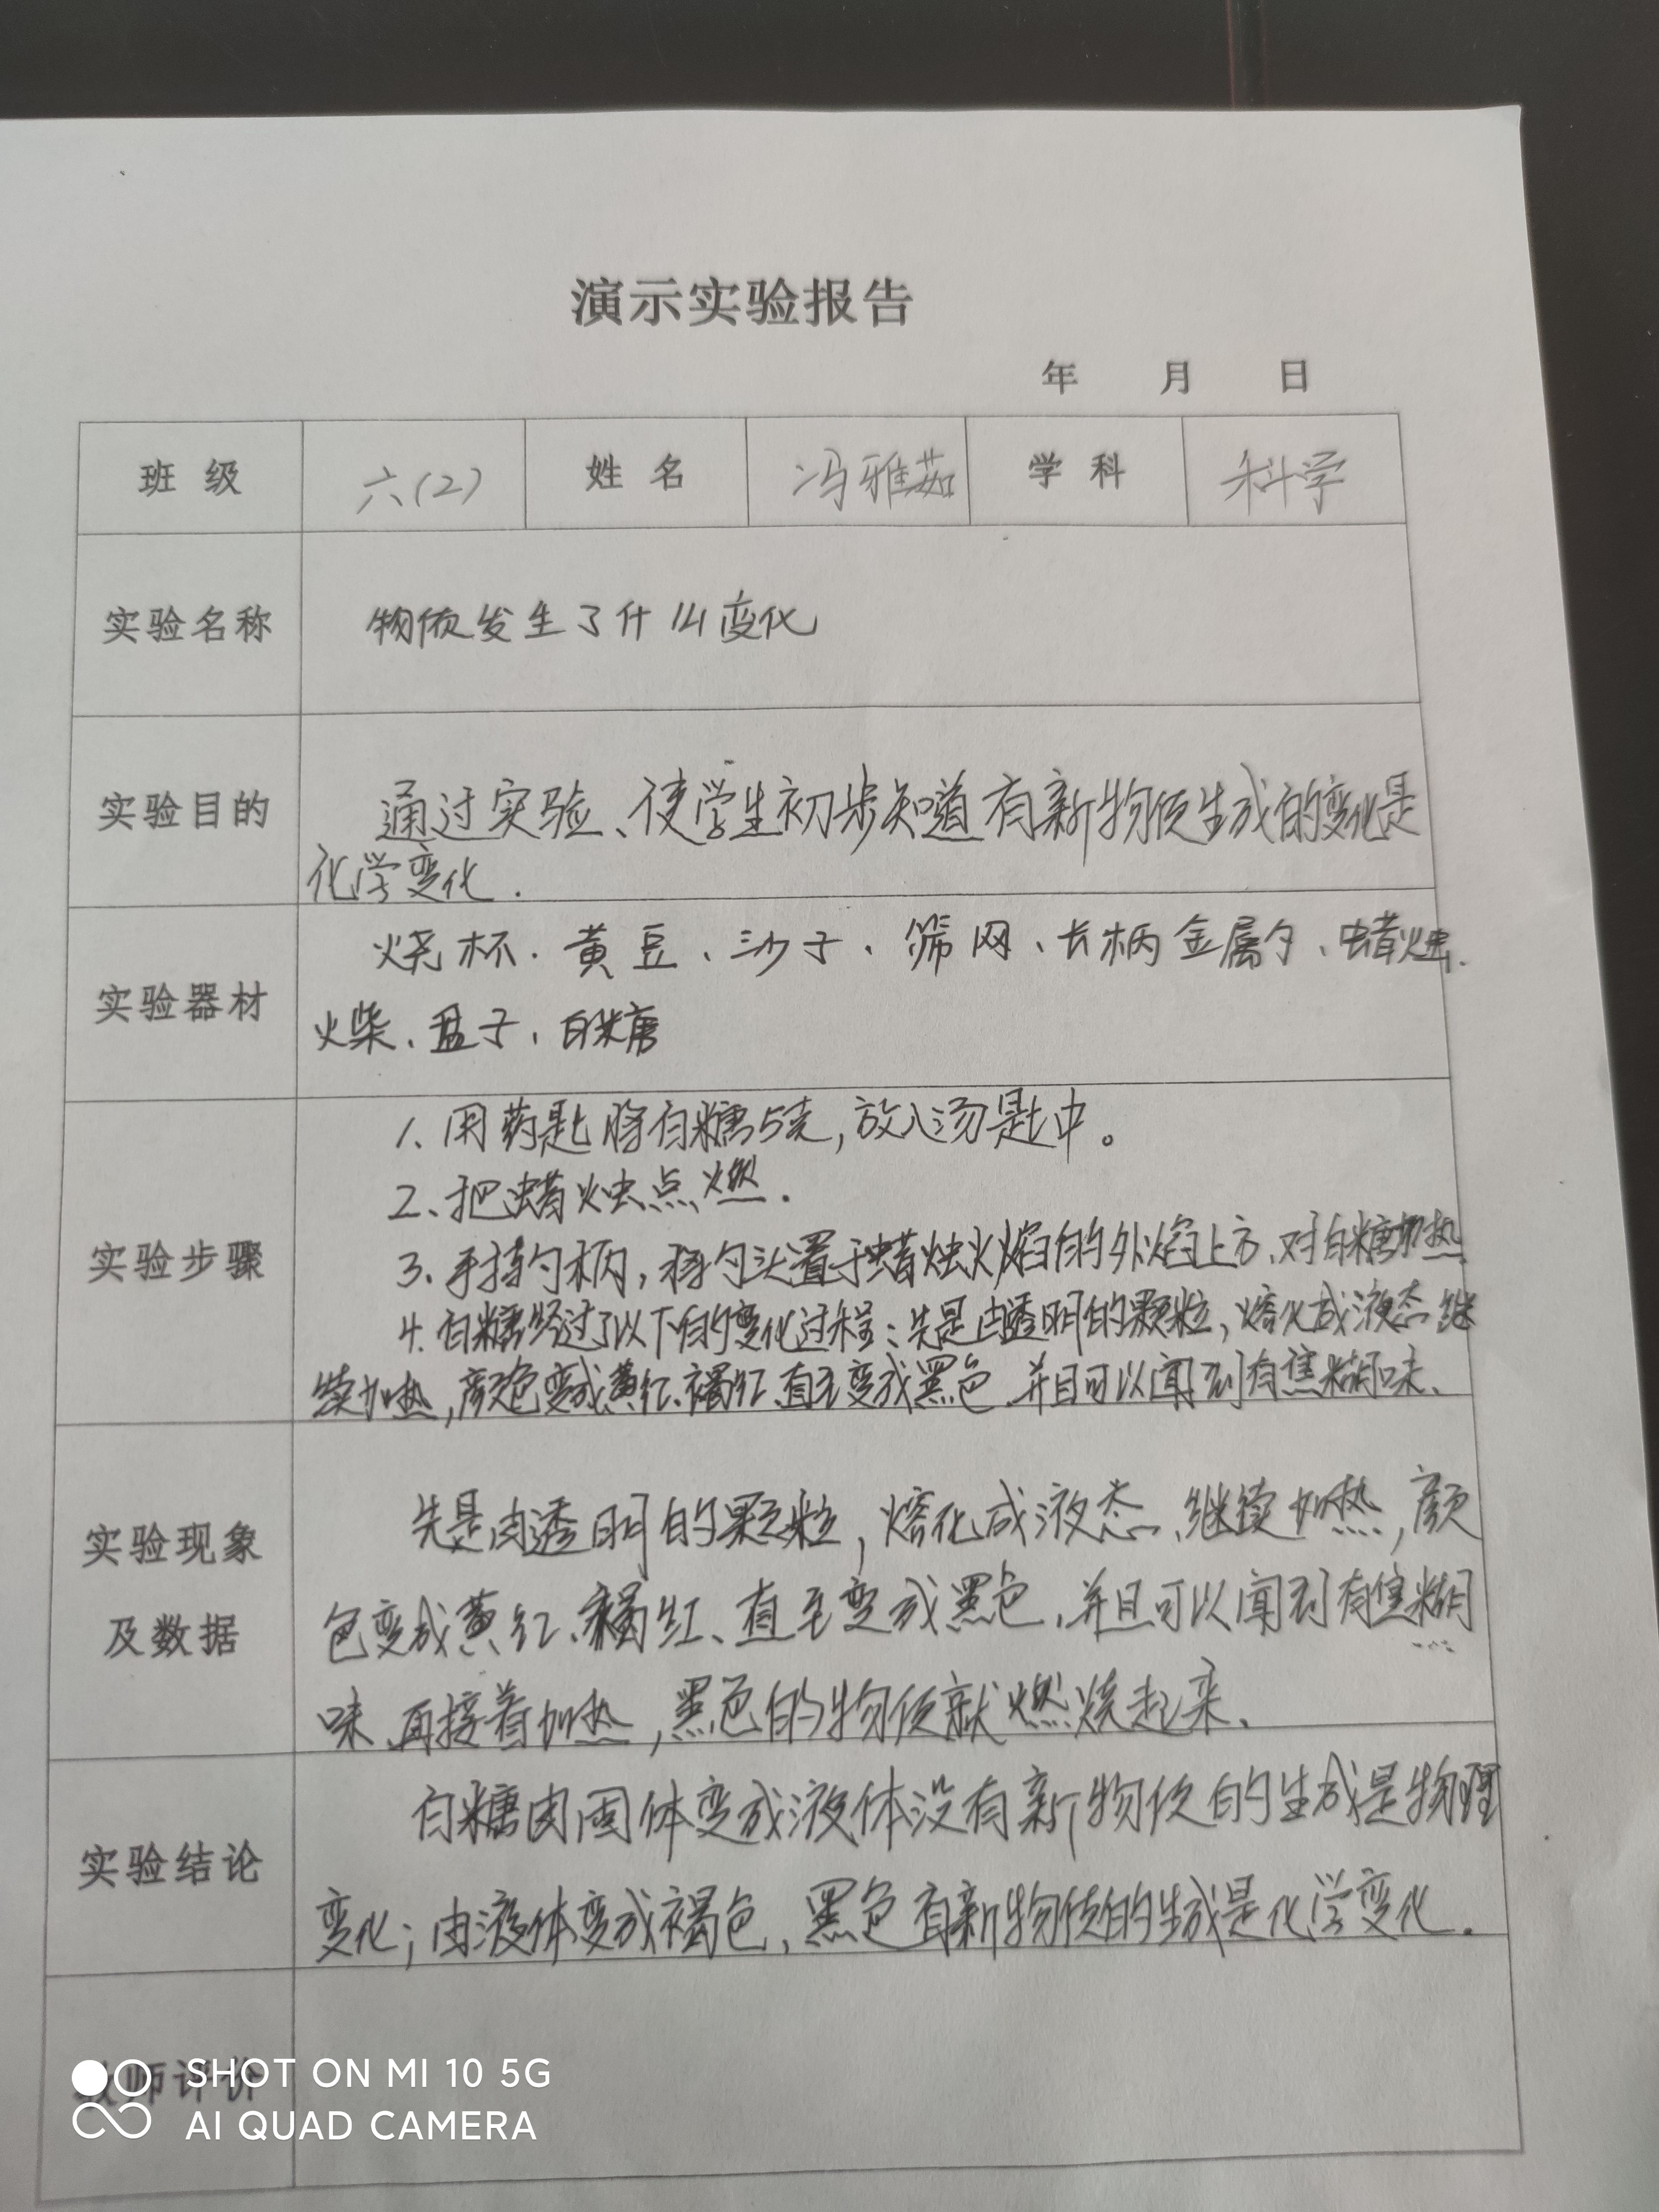 演示实验报告
年 月 日
班 级 六(2) 姓 名 冯雅茹 学 科 科学
实验名称 物质发生了什么变化
实验目的 通过实验、使学生初步知道有新物质生成的变化是
化学变化.
实验器材 烧杯、黄豆、沙子、筛网、长柄金属勺、蜡烛.
火柴、盘子、白糖
实验步骤
1、用药匙将白糖5克,放入汤匙中。
2、把蜡烛点燃.
3、手持勺柄,将勺头置于蜡烛火焰的外焰上方、对白糖加热.
4.白糖经过了以下的变化过程:先是由透明的颗粒,熔化成液态.继
续加热,颜色变成黄红、褐红、直至变成黑色.并且可以闻到有焦糊味、
实验现象
及数据
先是由透明的颗粒,熔化成液态、继续加热,颜
色变成黄红、褐红、直至变成黑色,并且可以闻到有焦糊
味.再接着加热,黑色的物质就燃烧起来、
实验结论 白糖由固体变成液体没有新物质的生成是物理
变化;由液体变成褐色,黑色有新物质的生成是化学变化.
教师评价
SHOT ON MI 10 5G
AI QUAD CAMERA